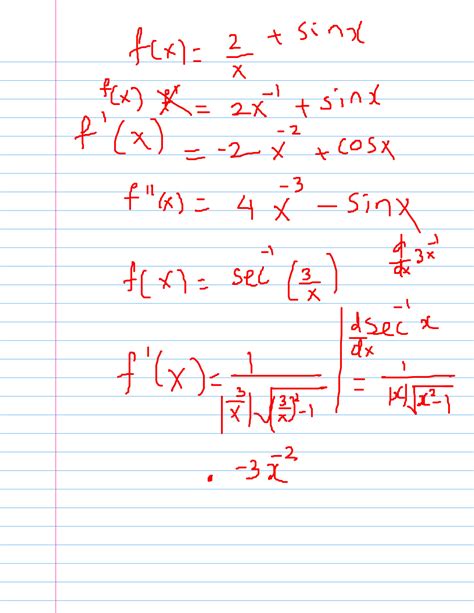 f(x) = 2/x + sinx
f(x) = 2x^-1 + sinx
f'(x) = -2x^-2 + cosx
f''(x) = 4x^-3 - sinx
d/dx 3x^-1
f(x) = sec^-1 (3/x)
d/dx sec^-1 x
f'(x) = 1/(|3/x|√((3/x)^2-1))
= 1/(|x|√(x^2-1))
. -3x^-2